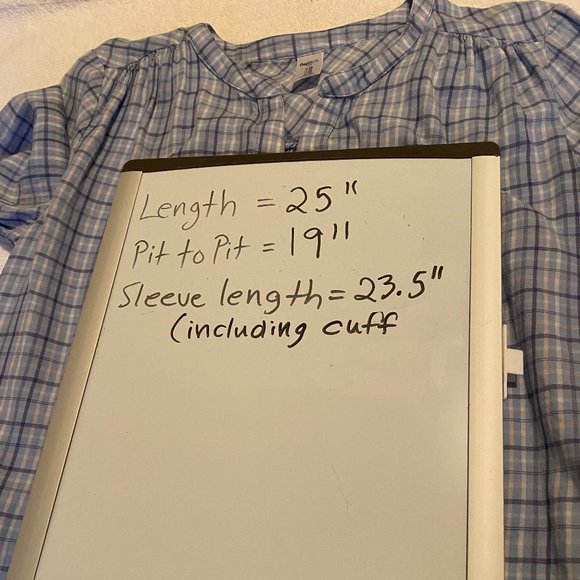 Length = 25"
Pit to Pit = 19"
Sleeve length = 23.5"
(including cuff